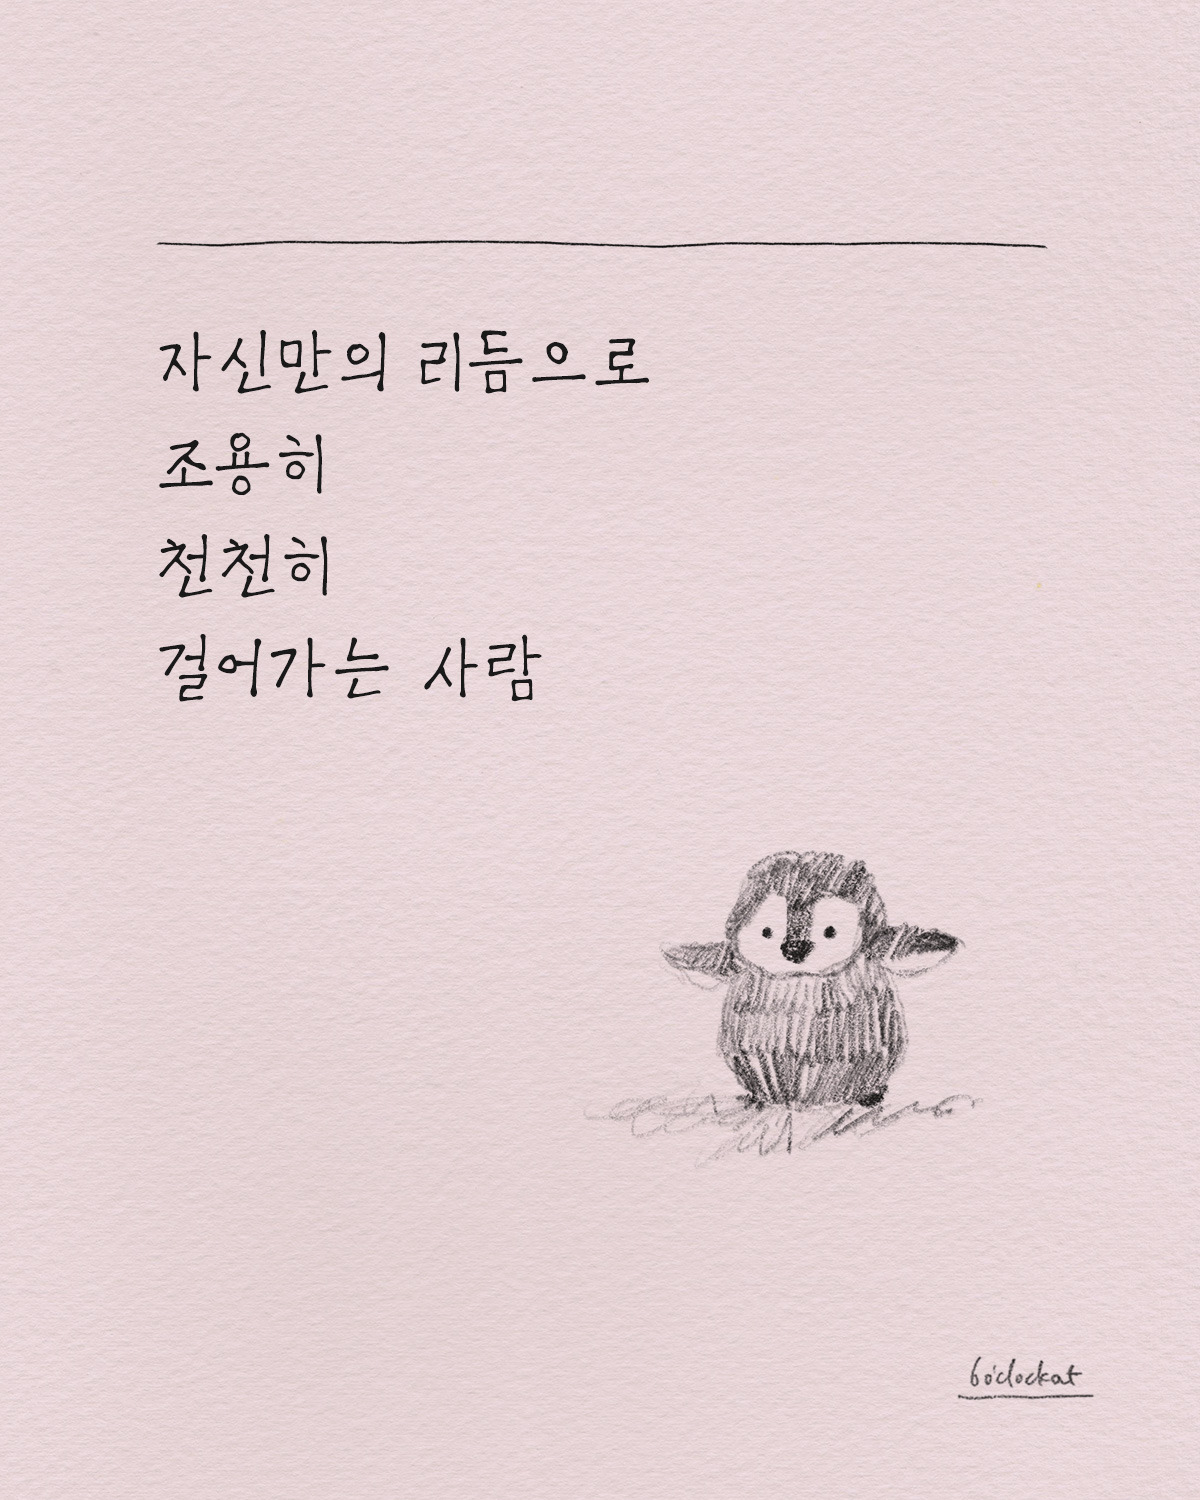 자신만의 리듬으로
조용히
천천히
걸어가는 사람
6o'clockat